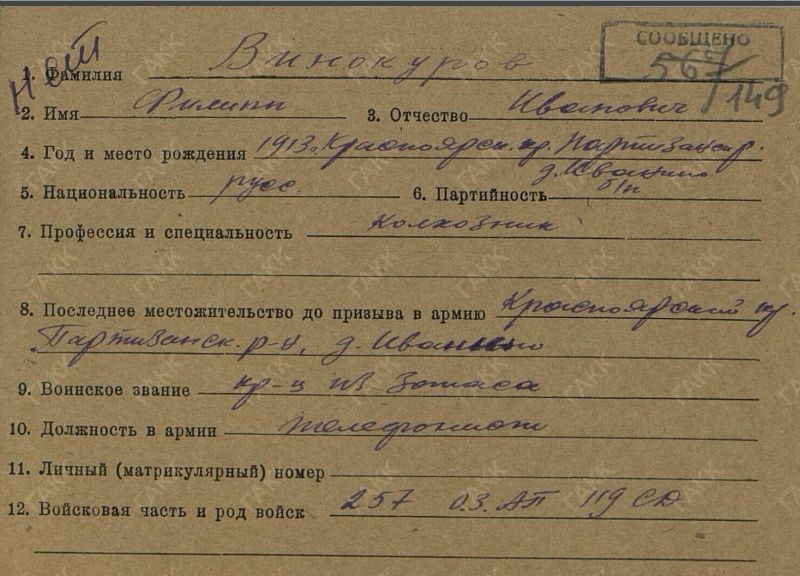 нет
СООБЩЕНО
567/149
1. Фамилия Винокуров
2. Имя Филипп 3. Отчество Иванович
4. Год и место рождения 1913г. Красноярск. кр. Партизанск р.
д. Иванкино
5. Национальность русс. 6. Партийность б/п
7. Профессия и специальность колхозник
8. Последнее местожительство до призыва в армию Красноярский кр.
Партизанск. р-н, д.
9. Воинское звание кр-ц из запаса
10. Должность в армии телефонист
11. Личный (матрикулярный) номер
12. Войсковая часть и род войск 257 АП 119 СД
ГАКК